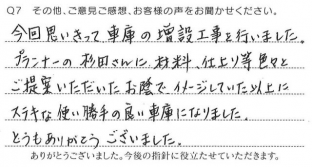 Q7 その他、ご意見ご感想、お客様の声をお聞かせください。
今回思いきって車庫の増設工事を行いました。
プランナーの杉田さんに材料、仕上り等色々と
ご提案いただいたお陰で、イメージしていた以上に
ステキな使い勝手の良い車庫になりました。
どうもありがとうございました。
ありがとうございました。今後の指針に役立たせていただきます。